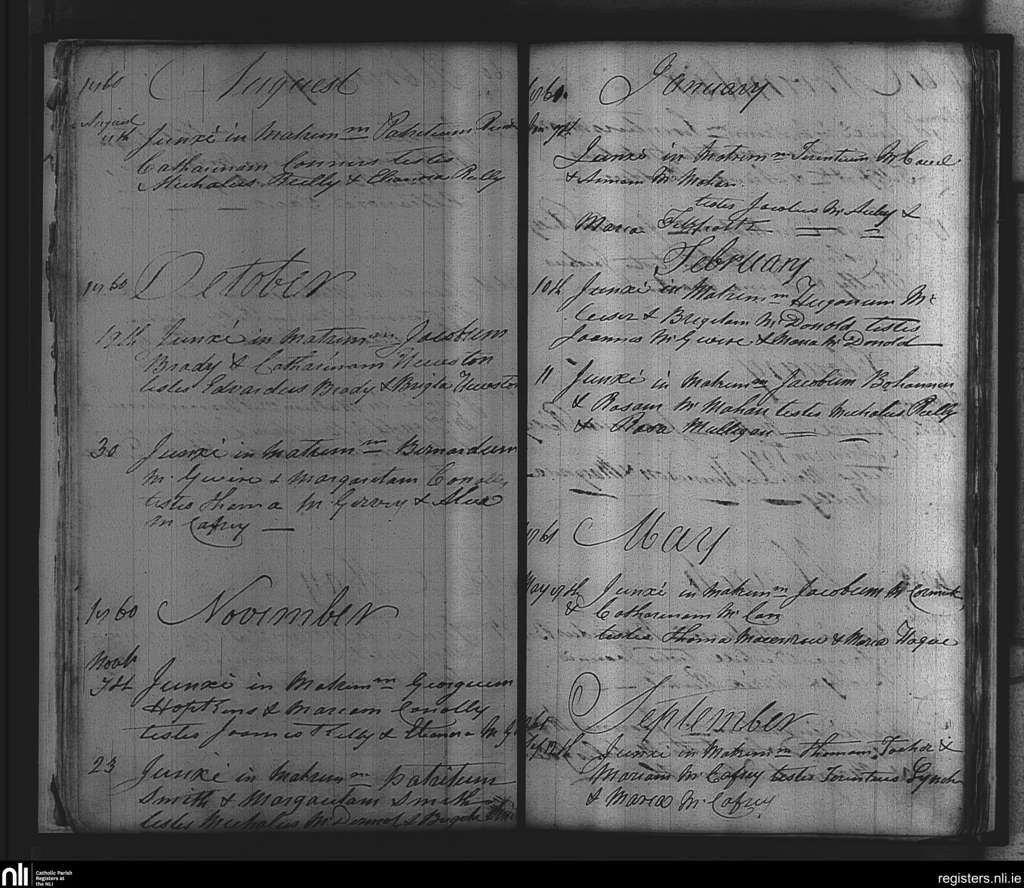 1860 August
August
11th Junxi in Matrim m Patritium
Catharinam Connirs testes
Michalius Reilly & Elianora Reilly
1860 October
19th Junxi in Matrim m Jacobum
Brady & Catharinam Hewston
testes Edvardus Brady & Brigta Hewston
30 Junxi in Matrim m Bernardum
Mc Gwire & Margaretam Conolly
testes Thoma Mc & Alice
Mc Cafrey
1860 November
Novbr
7th Junxi in Matrim m Georgium
Hopkins & Mariam Conolly
testes Joannes Reilly & Elianora Mc
23 Junxi in Matrim m patritum
Smith & Margaretam Smith
testes Michalius McDermot & Brigita
1861 January
Jan 9th
Junxi in Matrim m
& Annam McMahan
testes Jacobus McAuley &
Maria
February
10th Junxi in Matrim m Hugonum Mc
& Brigetam McDonold testes
Joannes McGwire & Maria McDonold
11 Junxi in Matrim m Jacobum Bohannon
& Rosam McMahan testes Michalius Reilly
& Rosa Mulligan
1861 May
May 19th Junxi in Matrim m Jacobum McCormick
& Catharinam McCan
testes Thoma & Maria Hague
1861 September
Sep 12th Junxi in Matrim m Thomam &
Mariam McCafrey testes Lynch
& Maria McCafrey
nli
Catholic Parish
Registers at
the NLI
registers.nli.ie